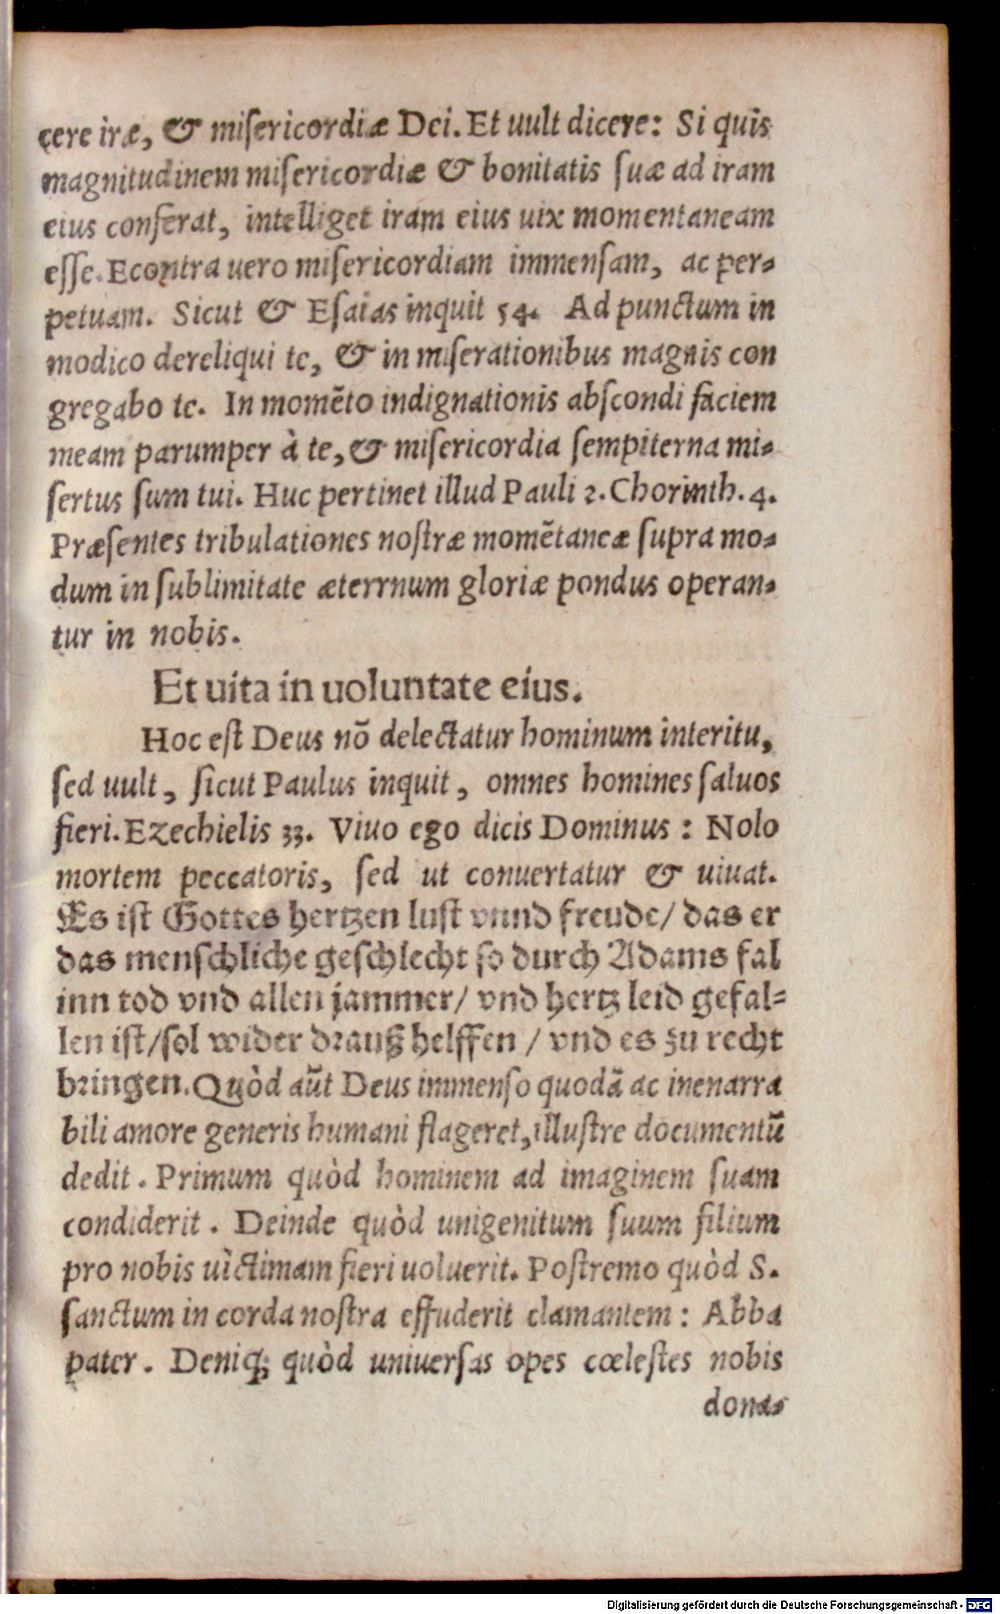 cere iræ, & misericordiæ Dei. Et uult dicere: Si quis
magnitudinem misericordiæ & bonitatis suæ ad iram
eius conferat, intelliget iram eius uix momentaneam
esse. Econtra uero misericordiam immensam, ac per-
petuam. Sicut & Esaias inquit 54. Ad punctum in
modico dereliqui te, & in miserationibus magnis con
gregabo te. In momẽto indignationis abscondi faciem
meam parumper à te, & misericordia sempiterna mi-
sertus sum tui. Huc pertinet illud Pauli 2. Chorinth. 4.
Præsentes tribulationes nostræ momẽtaneæ supra mo-
dum in sublimitate æterrnum gloriæ pondus operan-
tur in nobis.
Et uita in uoluntate eius.
Hoc est Deus nõ delectatur hominum interitu,
sed uult, sicut Paulus inquit, omnes homines saluos
fieri. Ezechielis 33. Viuo ego dicis Dominus: Nolo
mortem peccatoris, sed ut conuertatur & uiuat.
Es ist Gottes hertzen lust vnnd freude/ das er
das menschliche geschlecht so durch Adams fal
inn tod vnd allen jammer/ vnd hertz leid gefal-
len ist/sol wider drauß helffen / vnd es zu recht
bringen. Quòd aũt Deus immenso quodã ac inenarra
bili amore generis humani flageret, illustre documentũ
dedit. Primum quòd hominem ad imaginem suam
condiderit. Deinde quòd unigenitum suum filium
pro nobis uìctimam fieri uoluerit. Postremo quòd S.
sanctum in corda nostra effuderit clamantem: Abba
pater. Deniq; quòd uniuersas opes cœlestes nobis
dona-
Digitalisierung gefördert durch die Deutsche Forschungsgemeinschaft - DFG